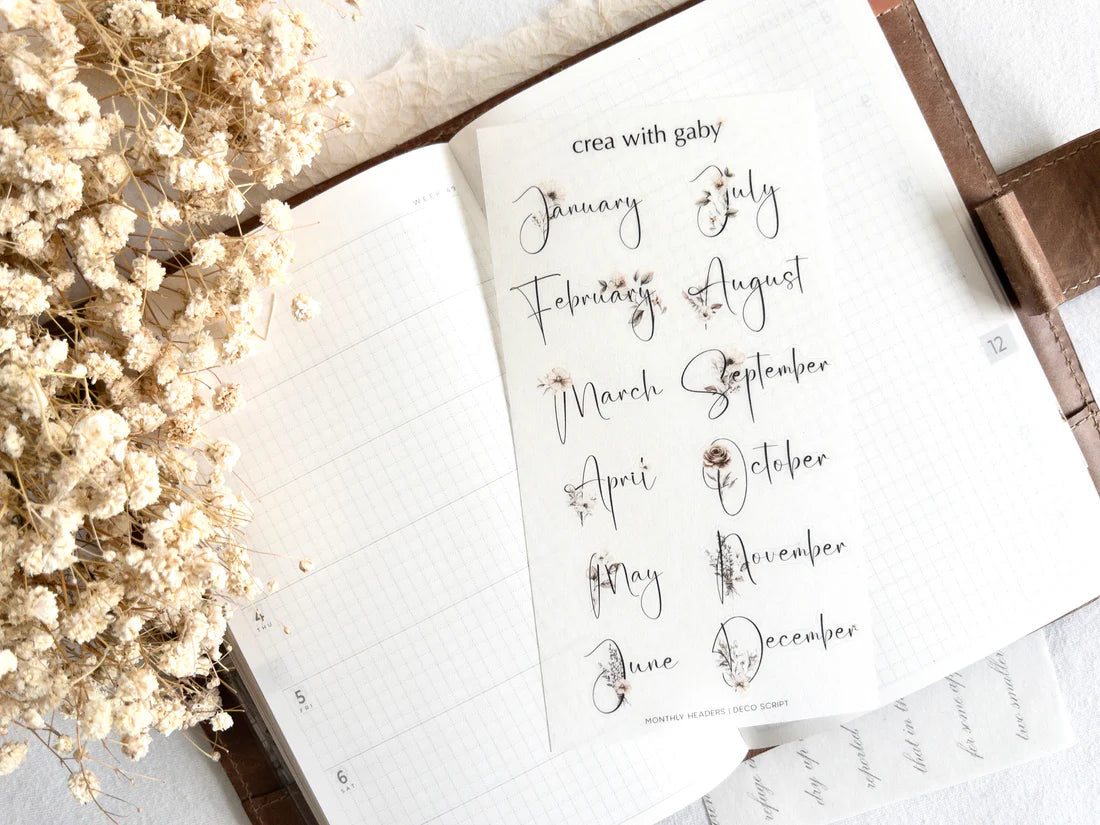 WEEK 49
crea with gaby
January
February
March
April
May
June
July
August
September
October
November
December
MONTHLY HEADERS | DECO SCRIPT
4
THU
5
FRI
6
SAT
12
refuge
dry up
reported
that in th
for some
two smaller